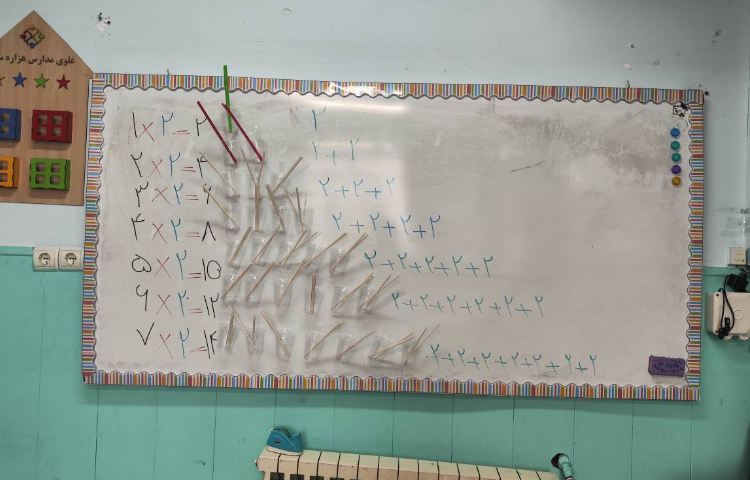 علوی مدارس هزاره
۱×۲=۲ ۲
۲×۲=۴ ۲+۲
۳×۲=۶ ۲+۲+۲
۴×۲=۸ ۲+۲+۲+۲
۵×۲=۱۰ ۲+۲+۲+۲+۲
۶×۲=۱۲ ۲+۲+۲+۲+۲+۲
۷×۲=۱۴ ۲+۲+۲+۲+۲+۲+۲